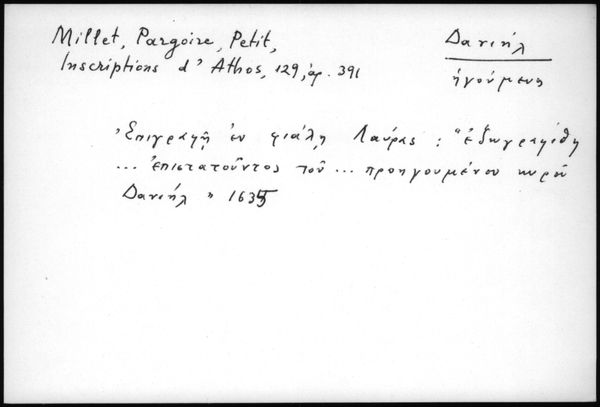 Millet, Pargoire, Petit,
Inscriptions d' Athos, 129, ἀρ. 391
Δανιήλ
ἡγούμενος
Ἐπιγραφὴ ἐν φιάλῃ Λαύρας : "ἐζωγραφίθη
... ἐπιστατοῦντος τοῦ ... προηγουμένου κυροῦ
Δανιήλ" 1635